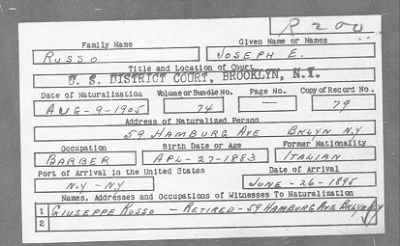 R200
Family Name Given Name or Names
RUSSO JOSEPH E.
Title and Location of Court
U. S. DISTRICT COURT, BROOKLYN, N.Y.
Date of Naturalization Volume or Bundle No. Page No. Copy of Record No.
AUG-9-1905 74 — 79
Address of Naturalized Person
59 HAMBURG AVE BKLYN N.Y
Occupation Birth Date or Age Former Nationality
BARBER APL-27-1883 ITALIAN
Port of Arrival in the United States Date of Arrival
N.Y - N.Y JUNE-26-1895
Names, Addresses and Occupations of Witnesses To Naturalization
1 GIUSEPPE RUSSO - RETIRED - 59 HAMBURG AVE BKLYN NY
2